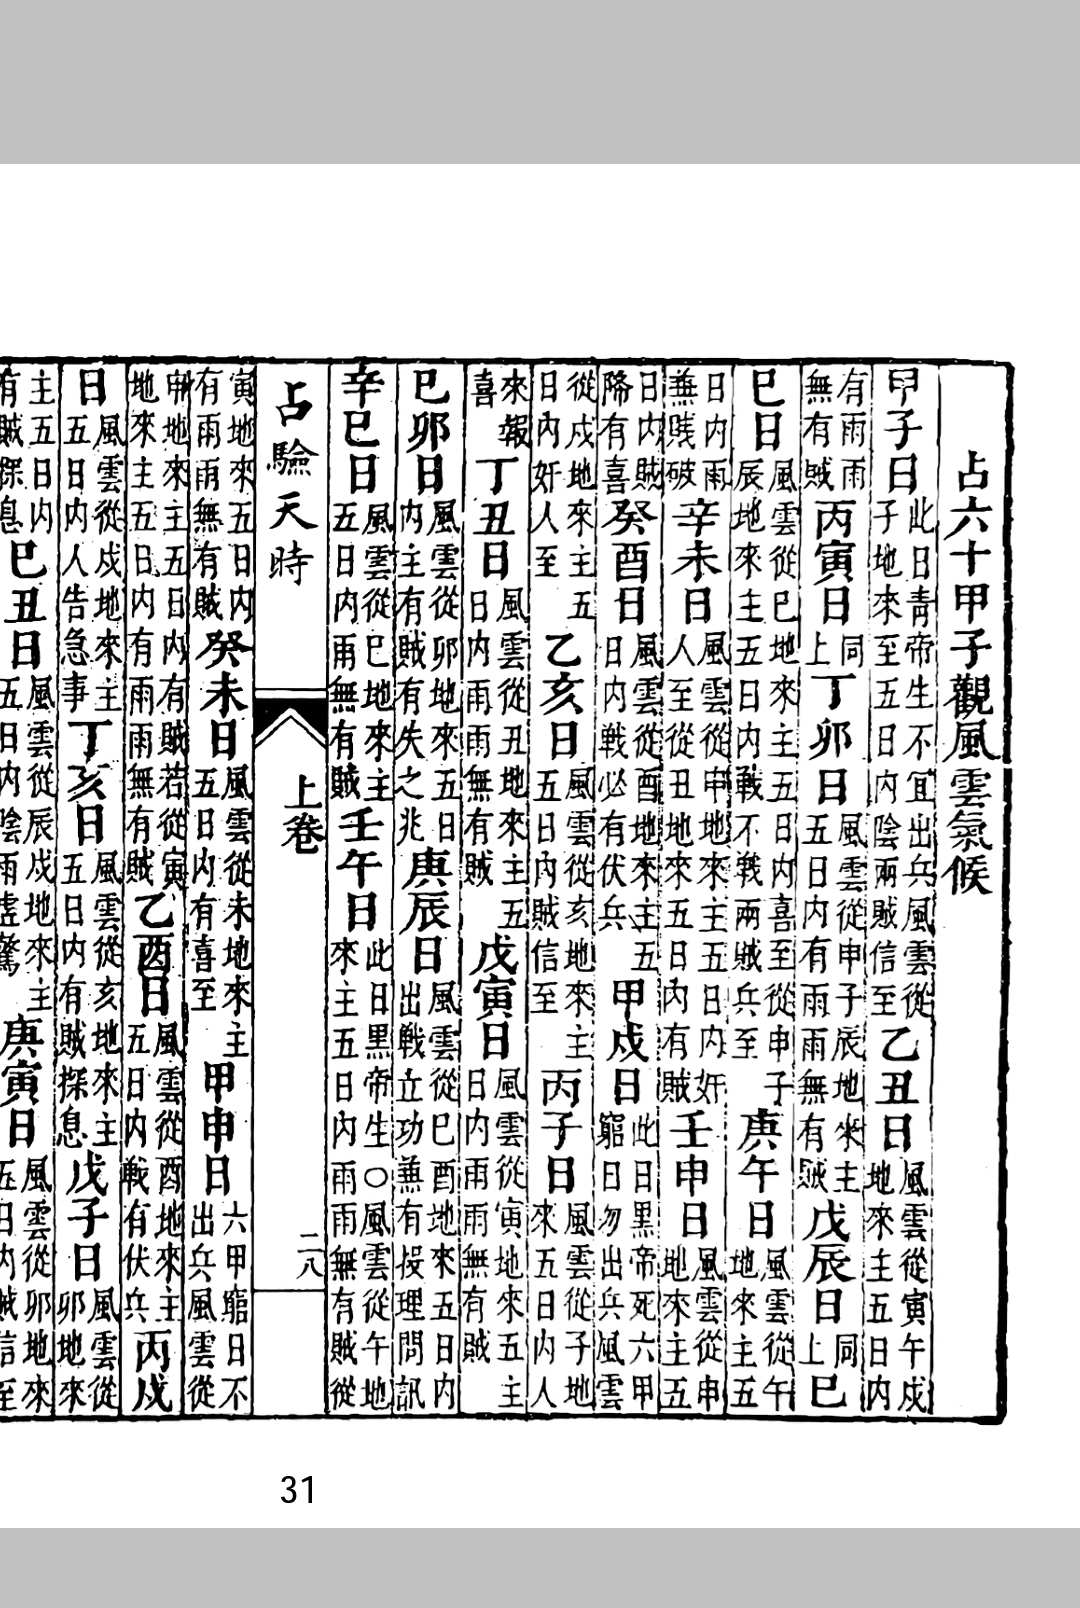 占六十甲子觀風雲氣候
甲子日此日青帝生不宜出兵風雲從子地來至五日内陰雨賊信至乙丑日風雲從寅午戌地來主五日内
有雨雨無有賊丙寅日同上丁卯日風雲從申子辰地來主五日内有雨雨無有賊戊辰日同上巳
巳日風雲從巳地來主五日内喜至從申子辰地來主五日内戰不戰兩賊兵至庚午日風雲從午地來主五
日内雨無賤破辛未日風雲從申地來主五日内奸人至從丑地來五日内有賊壬申日風雲從申地來主五
日内賊降有喜癸酉日風雲從酉地來主五日内戰必有伏兵甲戌日此日黑帝死六甲窮日勿出兵風雲
從戌地來主五日内奸人至乙亥日風雲從亥地來主五日内賊信至丙子日風雲從子地來五日内人
來報喜丁丑日風雲從丑地來主五日内雨雨無有賊戊寅日風雲從寅地來五主日内雨雨無有賊
巳卯日風雲從卯地來五日内主有賊有失之兆庚辰日風雲從巳酉地來五日内出戰立功無有投理問訊
辛巳日風雲從巳地來主五日内雨無有賊壬午日此日黑帝生○風雲從午地來主五日内雨雨無有賊從
占驗天時 上卷 二八
寅地來五日内有雨雨無有賊癸未日風雲從未地來主五日内有喜至甲申日六甲窮日不出兵風雲從
申地來主五日内有賊若從寅地來主五日内有雨雨無有賊乙酉日風雲從酉地來主五日内戰有伏兵丙戌
日風雲從戌地來主五日内人告急事丁亥日風雲從亥地來主五日内有賊探息戊子日風雲從卯地來
主五日内有賊探息巳丑日風雲從辰戌地來主五日内陰雨虛驚庚寅日風雲從卯地來五日内賊信至
31